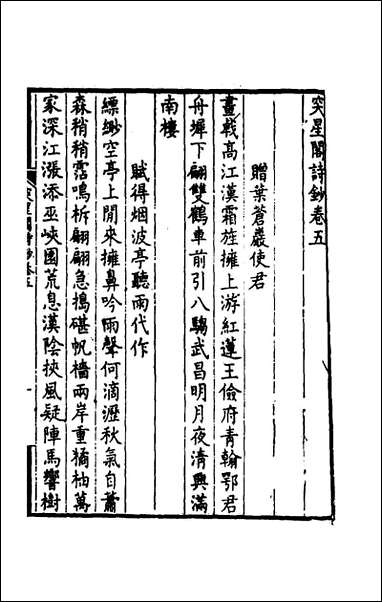 突星閣詩鈔卷五
贈葉蒼巖使君
畫戟高江漢霜旌擁上游紅蓮王儉府青翰鄂君
舟墀下翩雙鶴車前引八騶武昌明月夜清興滿
南樓
賦得烟波亭聽雨代作
縹緲空亭上閒來擁鼻吟雨聲何滴瀝秋氣自蕭
森稍稍霑鳴柝翩翩急搗碪帆檣兩岸重橘柚萬
家深江漲添巫峽園荒息漢陰挾風疑陣馬響樹
突星閣詩鈔卷五
一